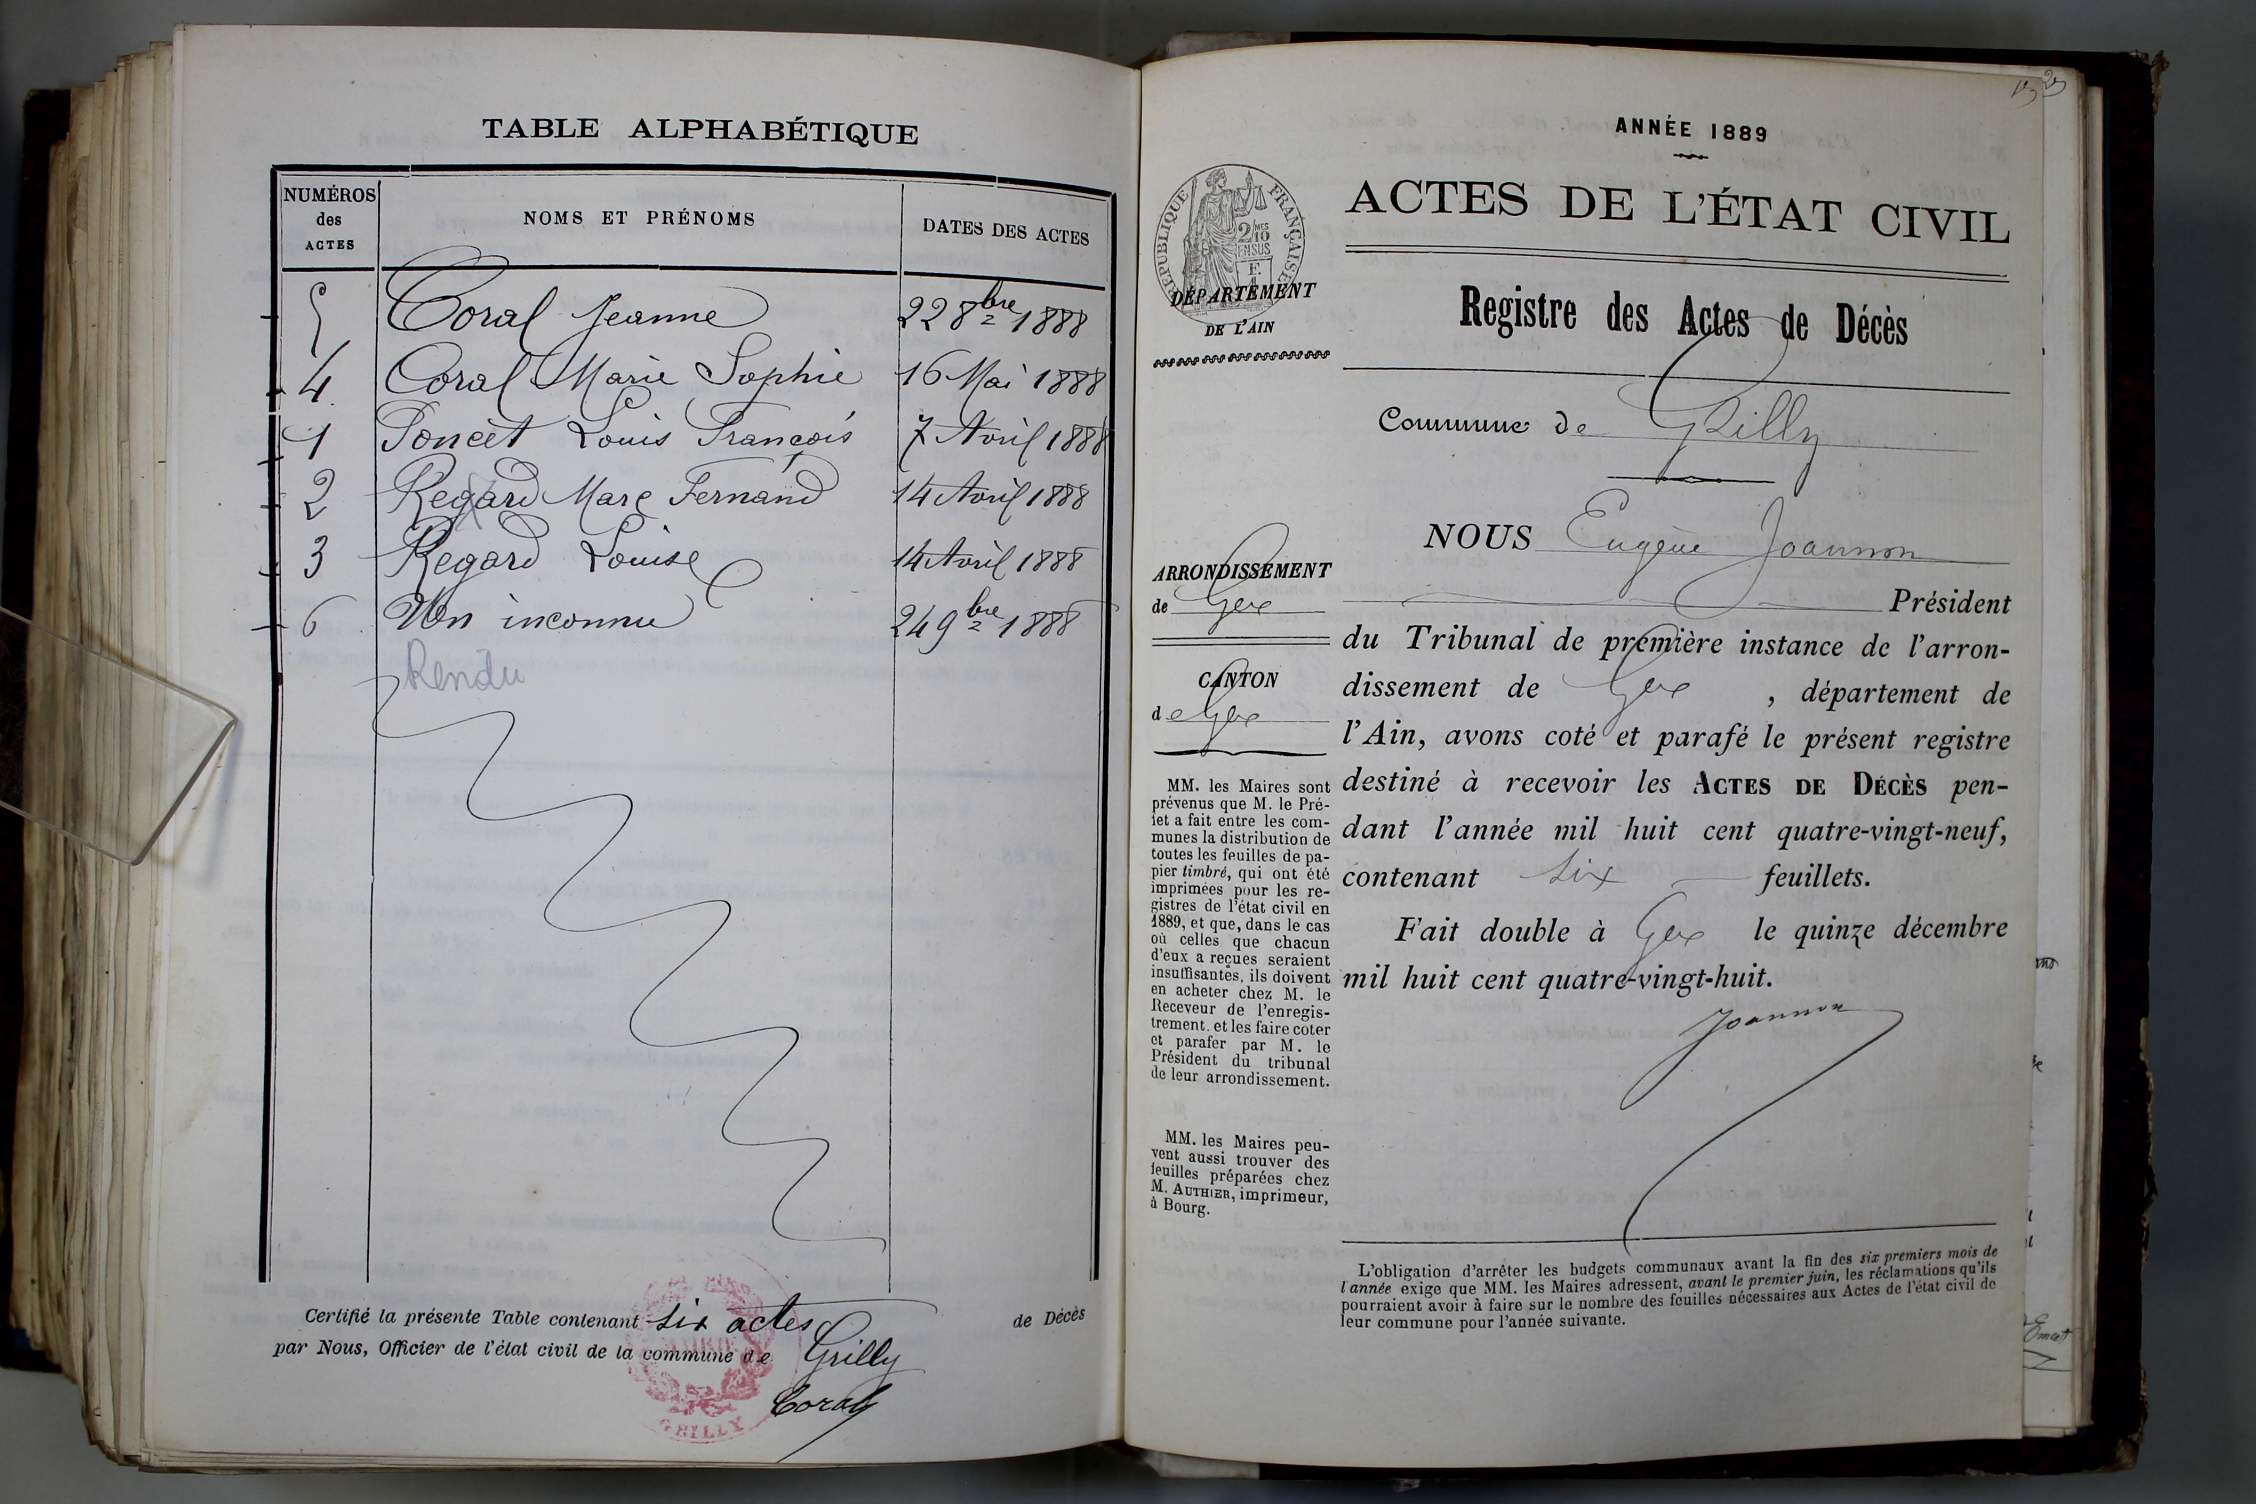 TABLE ALPHABÉTIQUE
NUMÉROS des ACTES NOMS ET PRÉNOMS DATES DES ACTES
5 Coral Jeanne 22 8bre 1888
4 Coral Marie Sophie 16 Mai 1888
1 Poncet Louis François 7 Avril 1888
2 Regard Marc Fernand 14 Avril 1888
3 Regard Louise 14 Avril 1888
6 Un inconnu 24 9bre 1888
Rendu
Certifié la présente Table contenant six actes de Décès
par Nous, Officier de l'état civil de la commune de Grilly
Coral
GRILLY
ANNÉE 1889
RÉPUBLIQUE FRANÇAISE
2/10 MES
EN SUS
DÉPARTEMENT
DE L'AIN
ACTES DE L'ÉTAT CIVIL
Registre des Actes de Décès
Commune de Grilly
ARRONDISSEMENT
de Gex
CANTON
de Gex
MM. les Maires sont
prévenus que M. le Pré-
fet a fait entre les com-
munes la distribution de
toutes les feuilles de pa-
pier timbré, qui ont été
imprimées pour les re-
gistres de l'état civil en
1889, et que, dans le cas
où celles que chacun
d'eux a reçues seraient
insuffisantes, ils doivent
en acheter chez M. le
Receveur de l'enregis-
trement, et les faire coter
et parafer par M. le
Président du tribunal
de leur arrondissement.
MM. les Maires peu-
vent aussi trouver des
feuilles préparées chez
M. AUTHIER, imprimeur,
à Bourg.
NOUS Eugène Joannon
Président
du Tribunal de première instance de l'arron-
dissement de Gex, département de
l'Ain, avons coté et parafé le présent registre
destiné à recevoir les ACTES DE DÉCÈS pen-
dant l'année mil huit cent quatre-vingt-neuf,
contenant six feuillets.
Fait double à Gex le quinze décembre
mil huit cent quatre-vingt-huit.
Joannon
L'obligation d'arrêter les budgets communaux avant la fin des six premiers mois de
l'année exige que MM. les Maires adressent, avant le premier juin, les réclamations qu'ils
pourraient avoir à faire sur le nombre des feuilles nécessaires aux Actes de l'état civil de
leur commune pour l'année suivante.